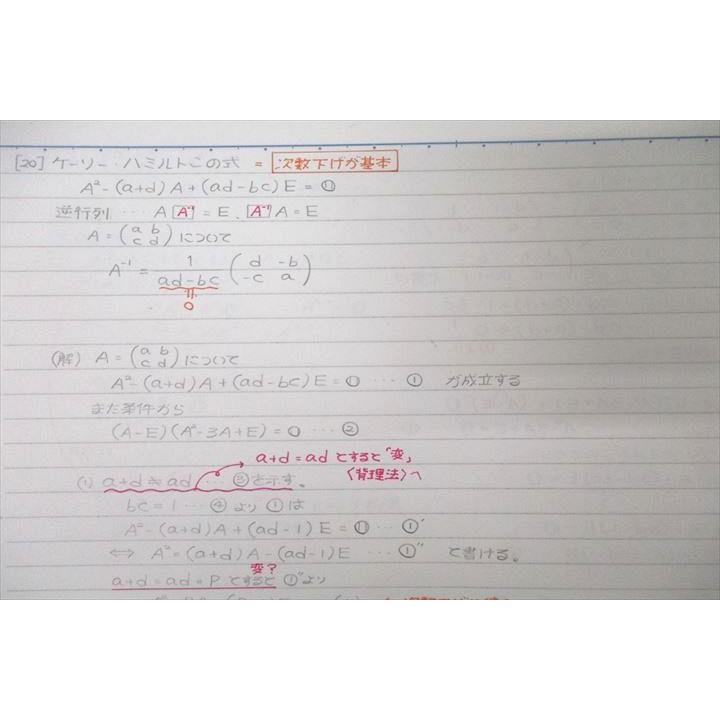 [20] ケーリー・ハミルトンの式 = 次数下げが基本
A² - (a+d)A + (ad-bc)E = O
逆行列 … A A⁻¹ = E、A⁻¹ A = E
A = (a b / c d) について
A⁻¹ = 1/(ad-bc) (d -b / -c a)
≠
0
(解) A = (a b / c d) について
A² - (a+d)A + (ad-bc)E = O … ① が成立する
また条件から
(A-E)(A²-3A+E) = O … ②
a+d = ad とすると「変」
〈背理法〉へ
(1) a+d ≠ ad … ③ を示す。
bc = 1 … ④ より ① は
A² - (a+d)A + (ad-1)E = O … ①'
⇔ A² = (a+d)A - (ad-1)E … ①'' と書ける。
変?
a+d = ad = P とすると ①''より